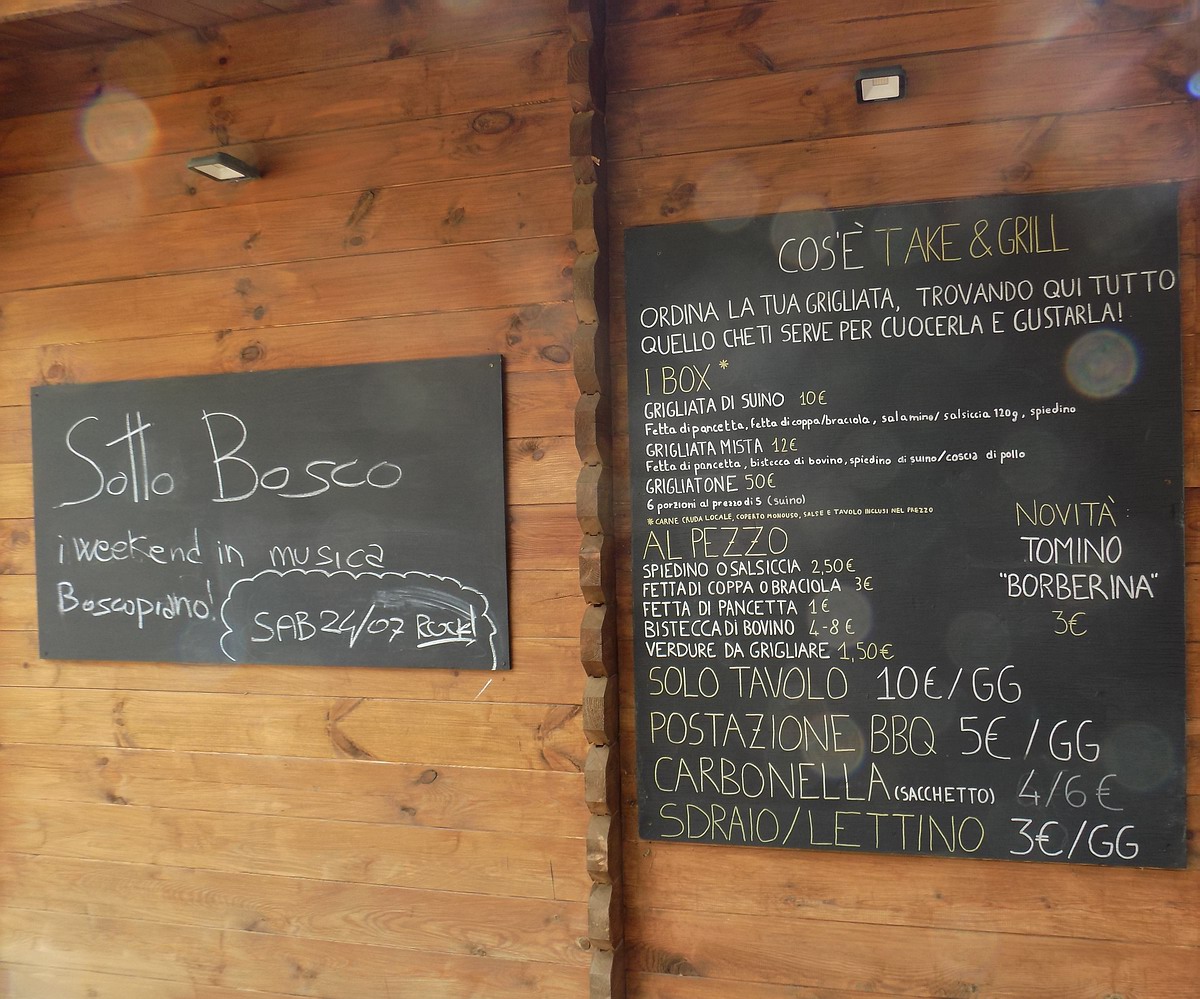 Sotto Bosco
i weekend in musica
Boscopiano!
SAB 24/07 Rock!
COS'È TAKE & GRILL
ORDINA LA TUA GRIGLIATA, TROVANDO QUI TUTTO
QUELLO CHE TI SERVE PER CUOCERLA E GUSTARLA!
I BOX *
GRIGLIATA DI SUINO 10€
Fetta di pancetta, fetta di coppa/braciola, salamino/salsiccia 120g, spiedino
GRIGLIATA MISTA 12€
Fetta di pancetta, bistecca di bovino, spiedino di suino/coscia di pollo
GRIGLIATONE 50€
6 porzioni al prezzo di 5 (suino)
* CARNE CRUDA LOCALE, COPERTO MONOUSO, SALSE E TAVOLO INCLUSI NEL PREZZO
AL PEZZO
SPIEDINO O SALSICCIA 2,50€
FETTA DI COPPA O BRACIOLA 3€
FETTA DI PANCETTA 1€
BISTECCA DI BOVINO 4-8€
VERDURE DA GRIGLIARE 1,50€
NOVITÀ:
TOMINO
"BORBERINA"
3€
SOLO TAVOLO 10€/GG
POSTAZIONE BBQ 5€/GG
CARBONELLA (SACCHETTO) 4/6€
SDRAIO/LETTINO 3€/GG